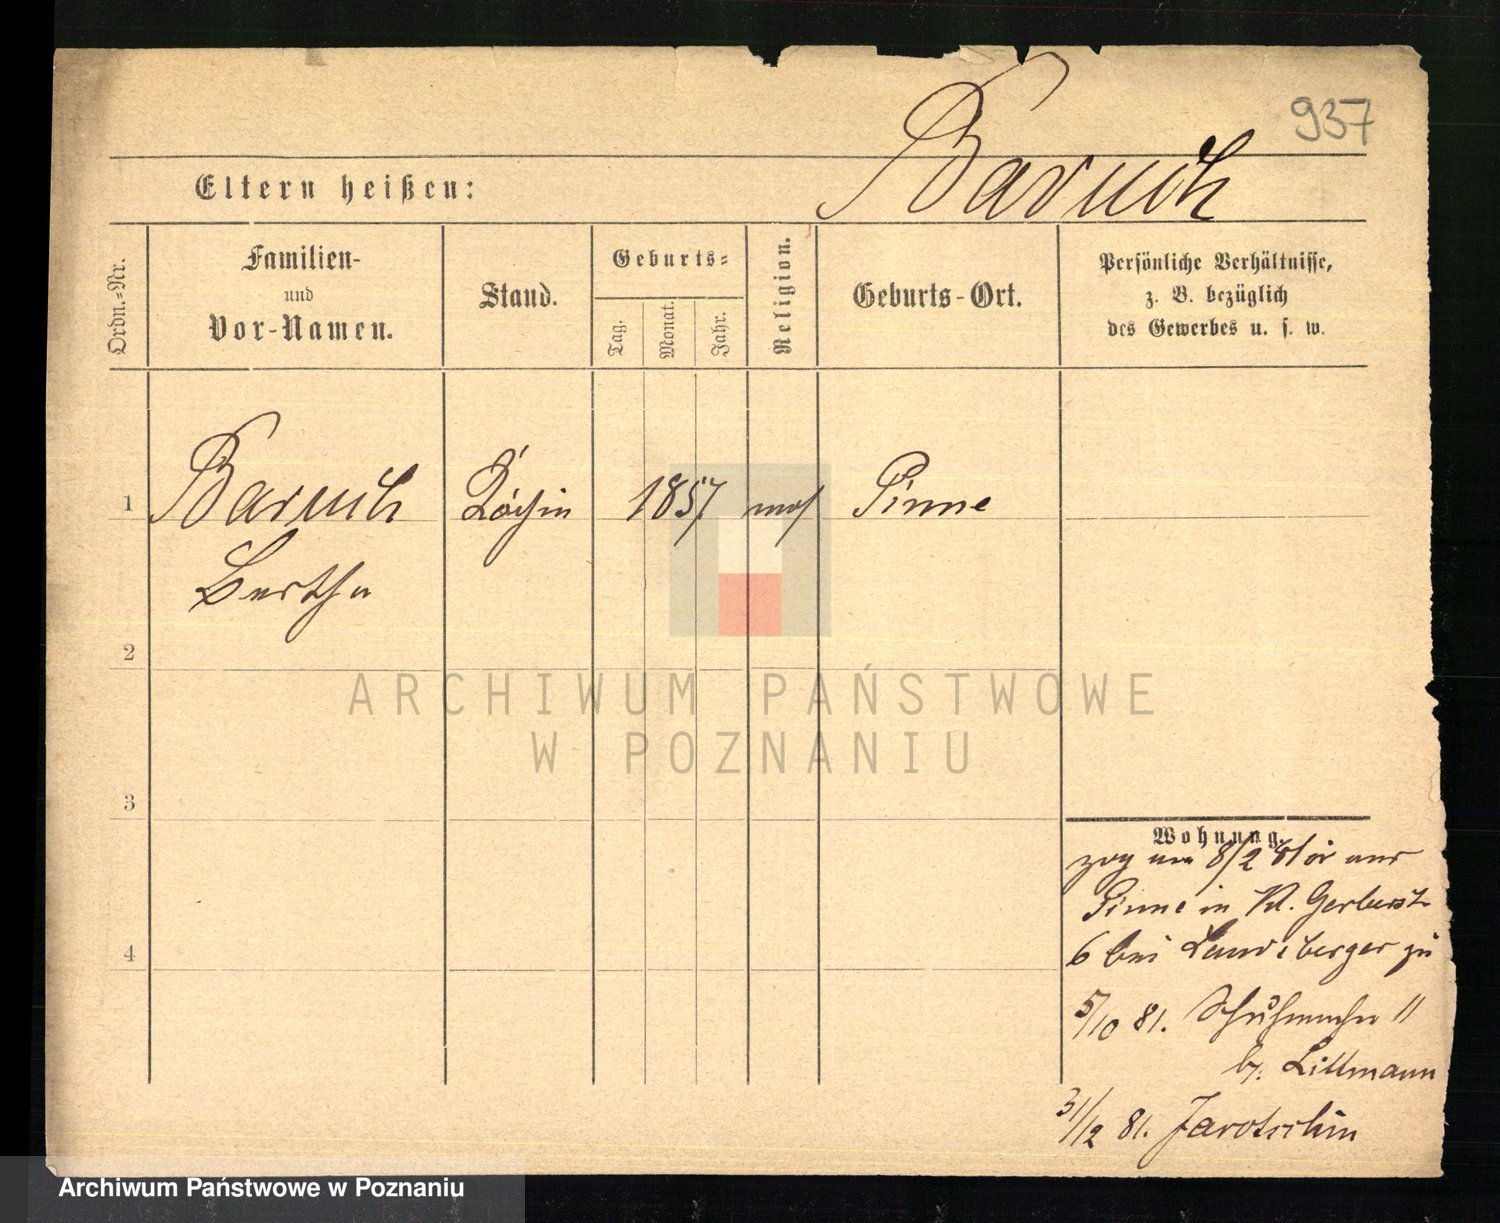 937
Baruch
Eltern heißen:
Ordn.=Nr.
Familien-
und
Vor-Namen.
Stand.
Geburts=
Tag.
Monat.
Jahr.
Religion.
Geburts-Ort.
Persönliche Verhältnisse,
z. B. bezüglich
des Gewerbes u. s. w.
1
Baruch
Bertha
Köchin
1857
mos
Pinne
2
3
4
ARCHIWUM PAŃSTWOWE
W POZNANIU
Wohnung.
zog am 8/2 81 aus
Pinne in Kl. Gerberst
6 bei Landsberger zu
5/10 81. Schuhmacher 11
b. Littmann
31/12 81. Jarotschin
Archiwum Państwowe w Poznaniu